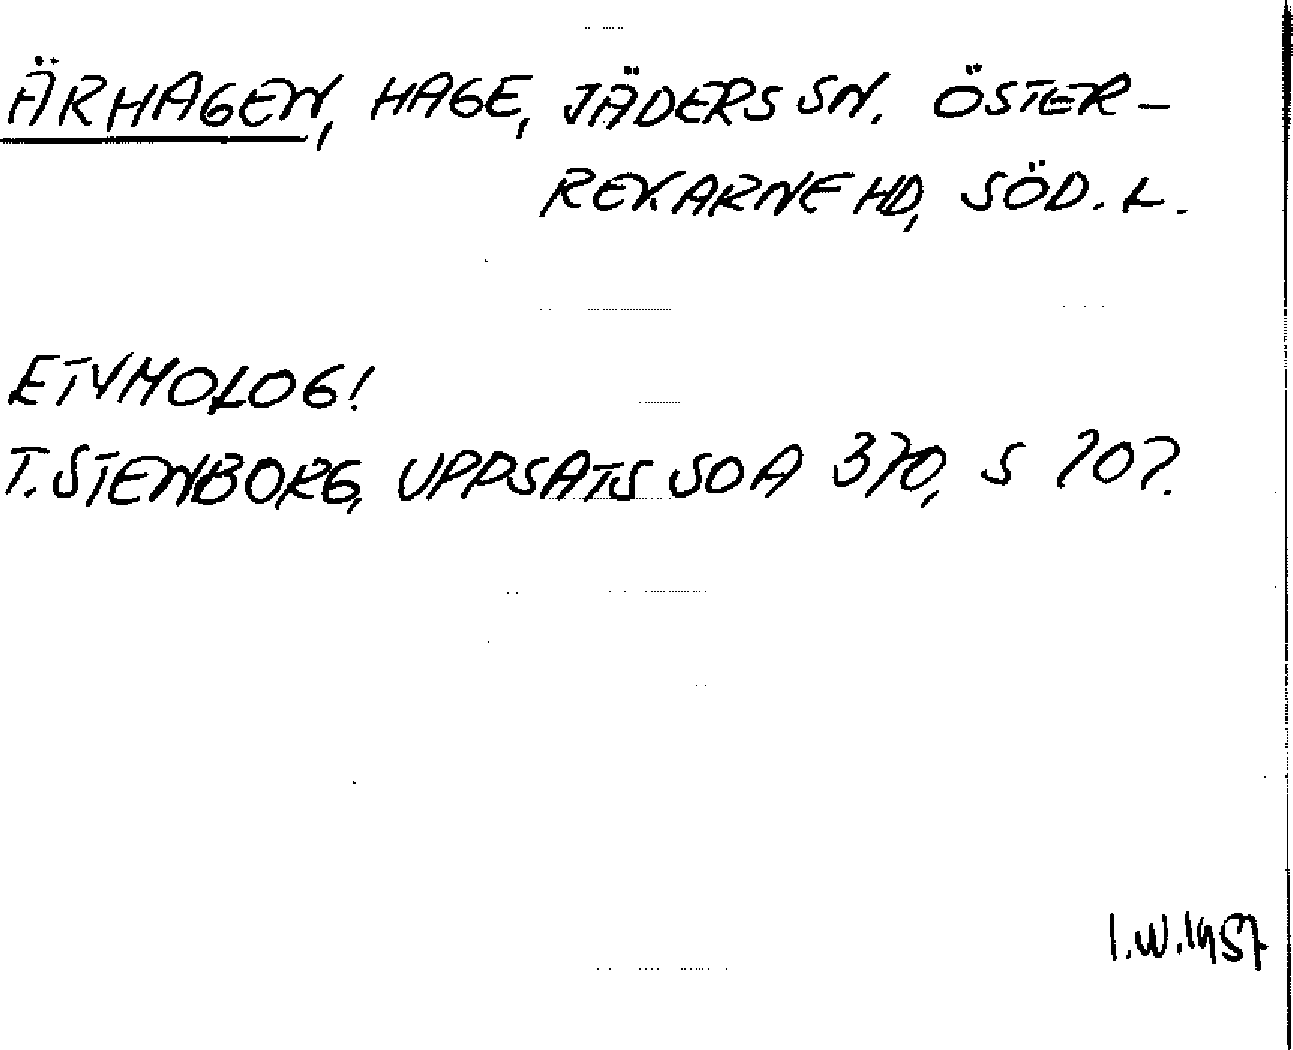 ÄRHAGEN, HAGE, JÄDERS SN. ÖSTER-
REKARNE HD, SÖD. L.
ETYMOLOG!
T. STENBORG, UPPSATS SOA 370, S 107.
I.W. 1957